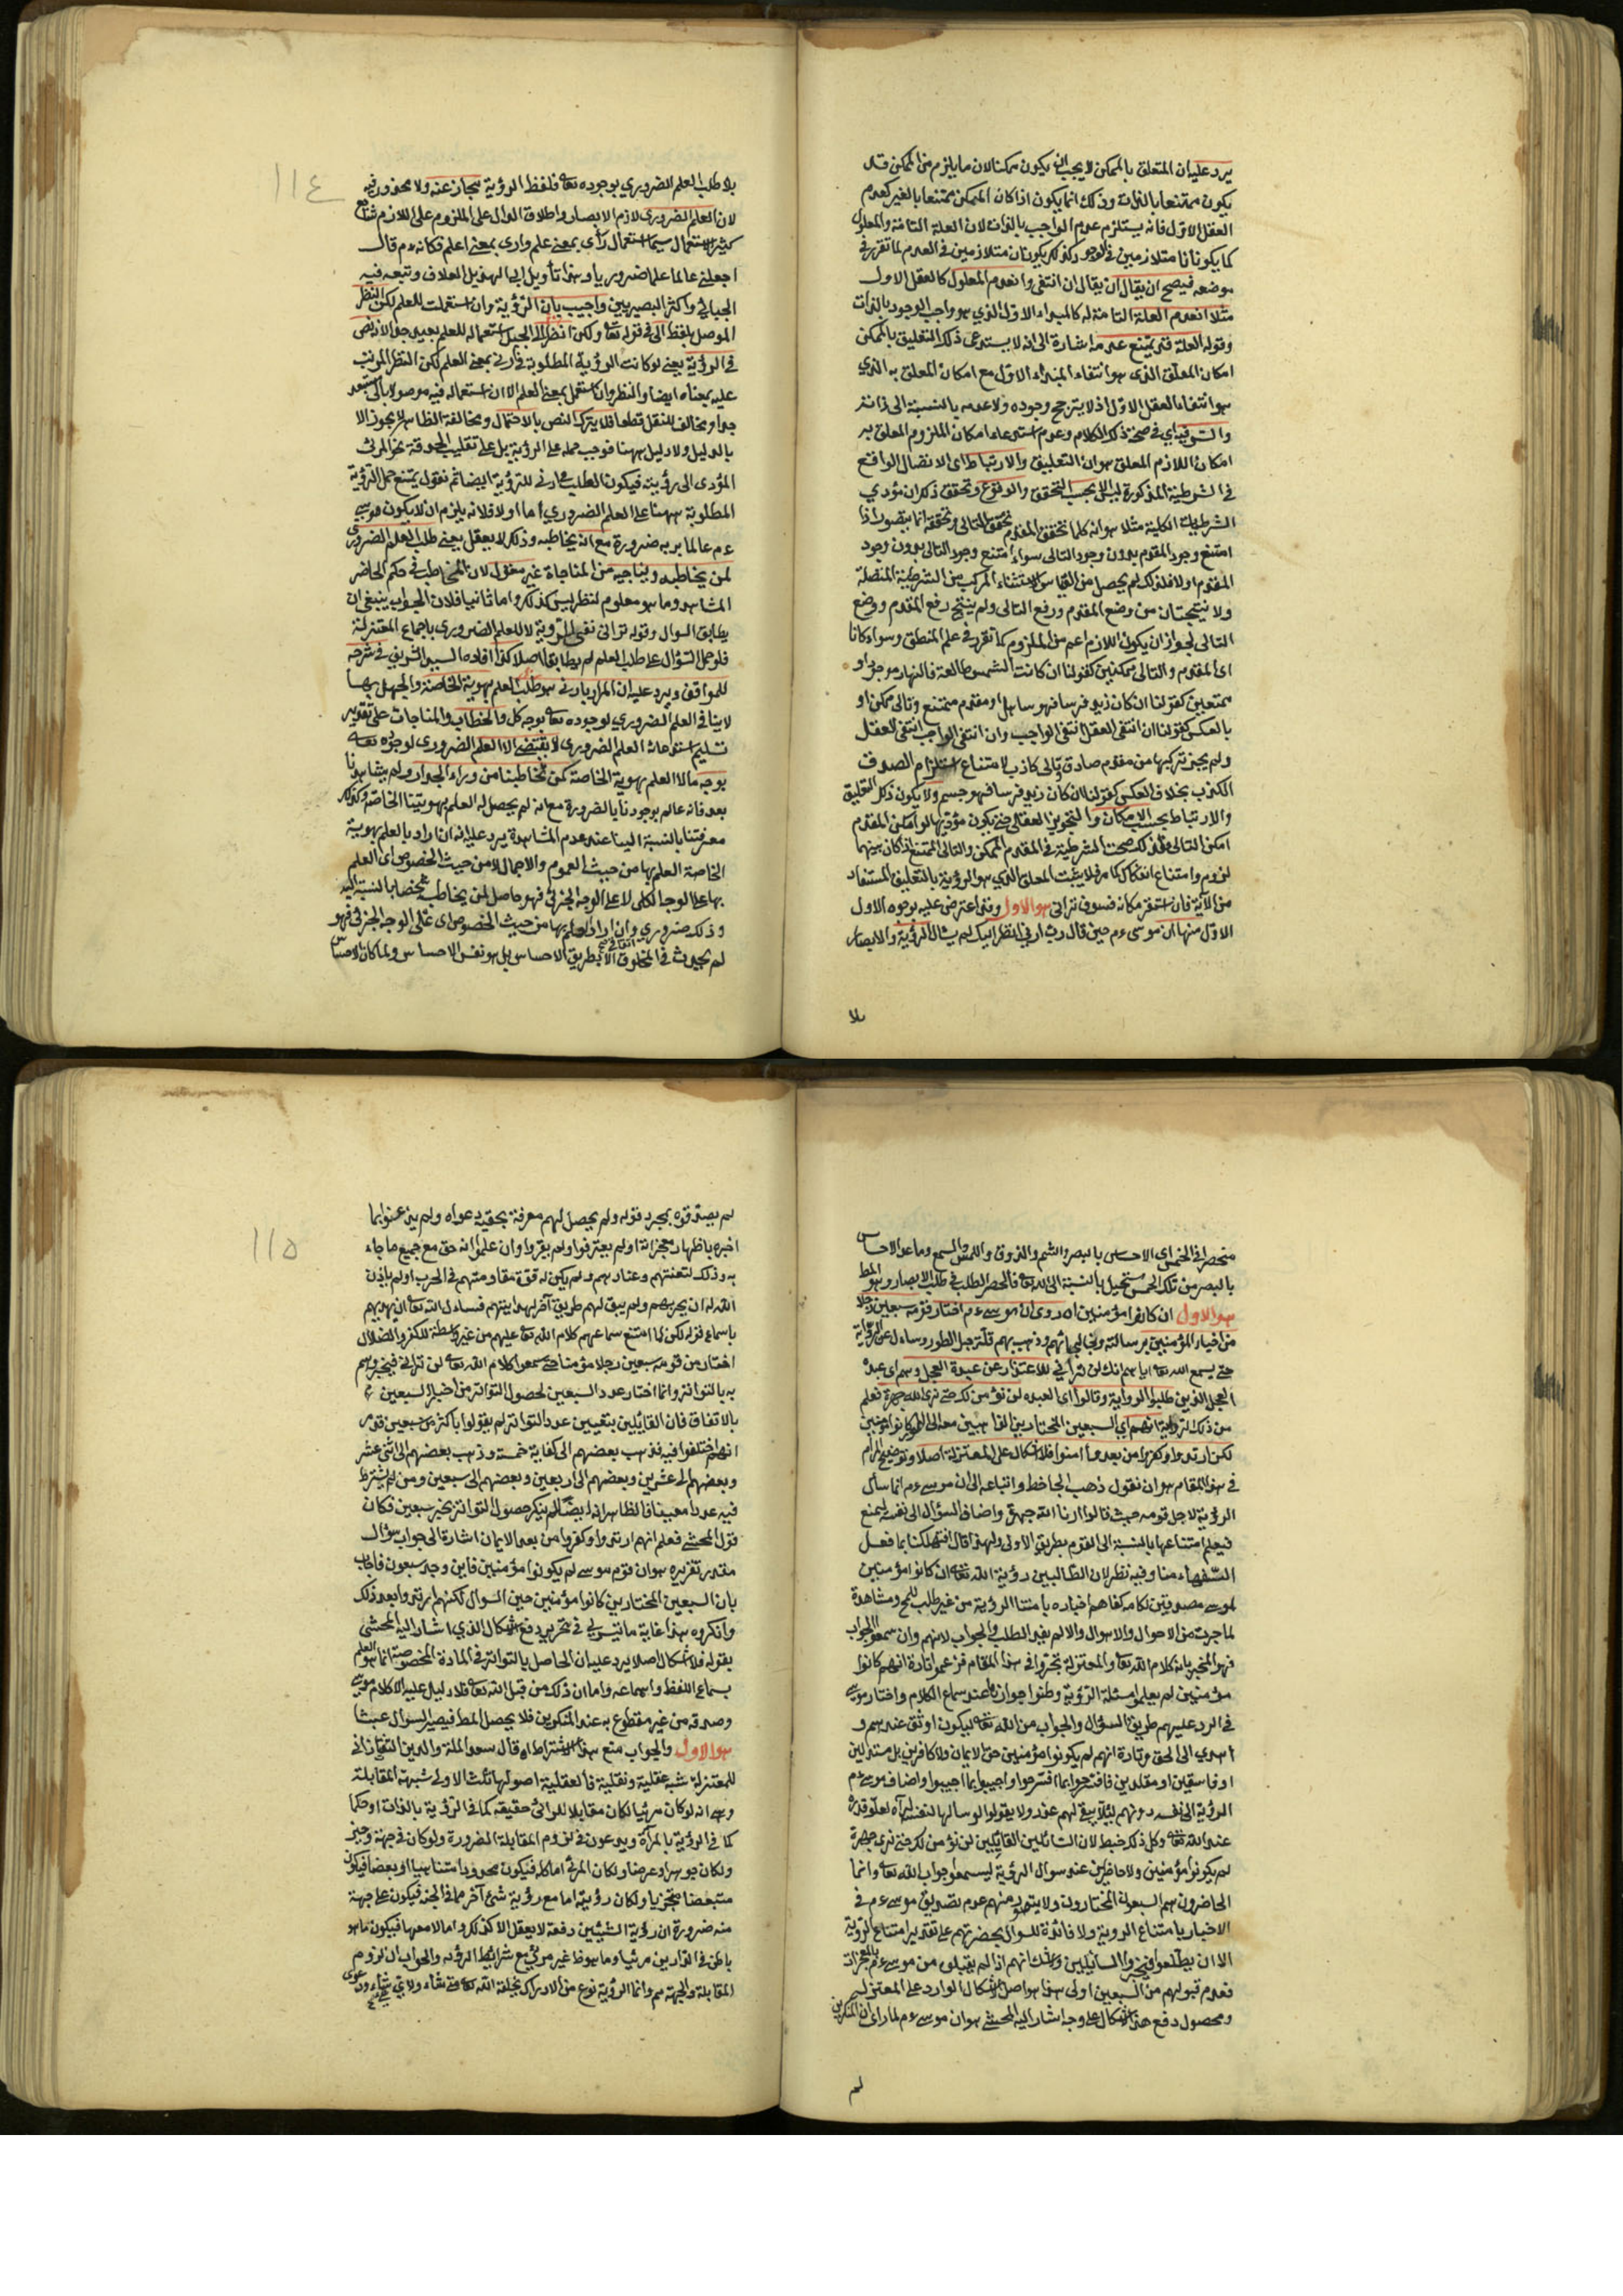 يرد عليه ان المتعلق بالممكن لا يجب ان يكون ممكنا لان ما يلزم من الممكن قد
يكون ممتنعا بالذات وذلك انما يكون اذا كان الممكن ممتنعا بالغير كعدم
العقل الاول فانه يستلزم عدم الواجب بالذات لان العلة التامة والمعلول
كما يكونان متلازمين في الوجود كذلك يكونان متلازمين في العدم لما تقرر في
موضعه فيصح ان يقال ان انتفى وانعدم المعلول كالعقل الاول
مثلا انعدم العلة التامة له كالمبداء الاول الذي هو واجب الوجود بالذات
وقوله العلة قد يمتنع عدمه اشارة الى انه لا يستدعى ذلك التعليق بالممكن
امكان المعلق الذى هو انتفاء المبداء الاول مع امكان المعلق به الذي
هو انتفاء العقل الاول اذ لا يترجح وجوده ولا عدمه بالنسبة الى ذاته
والسر فيه اي في صحة ذلك الكلام وعدم استدعاء امكان الملزوم المعلق به
امكان اللازم المعلق هو ان التعليق والارتباط اى الاتصال الواقع
في الشرطية المذكورة ليس الا بحسب التحقق والوقوع وتحقق ذلك ان مؤدي
الشرطية الكلية مثلا هو انه كلما تحقق المقدم تحقق التالى وتحققه انما يتصور اذا
امتنع وجود المقدم بدون وجود التالى سواء امتنع وجود التالى بدون وجود
المقدم اولا فلذلك لم يحصل من القياس الاستثناء المركب من الشرطية المتصلة
ولا نتيجتان من وضع المقدم ورفع التالى ولم ينتج رفع المقدم ووضع
التالى لجواز ان يكون اللازم اعم من الملزوم كما تقرر في علم المنطق وسواء كانا
اى المقدم والتالى ممكنين كقولنا ان كانت الشمس طالعة فالنهار موجود او
ممتنعين كقولنا ان كان زيد فرسا فهو ساهل او مقدم ممتنع وتالى ممكن او
بالعكس كقولنا ان انتفى العقل انتفى الواجب وان انتفى الواجب انتفى العقل
ولم يجز تركيبها من مقدم صادق وتالى كاذب لامتناع استلزام الصدق
الكذب بخلاف العكس كقولنا ان كان زيد فرسا فهو جسم ولا يكون ذلك التعليق
والارتباط بحسب الامكان والتجويز العقلى حتى يكون مؤديها لو امكن المقدم
امكن التالى فلذلك صحت الشرطية في المقدم الممكن والتالى الممتنع اذا كان بينهما
لزوم وامتناع انفكاك كما مر فلا يثبت المعلق الذي هو الرؤية بالتعليق المستفاد
من الآية فان استقر مكانه فسوف تراني هو الاول وقد اعترض عليه بوجوه الاول
الاول منها ان موسى ءم حين قال رب ارني انظر اليك لم يسأل الرؤية والابصار
بلا
١١٤
بلا طلب العلم الضروري بوجوده تعا فلفظ الرؤية مجاز عنه ولا محذور فيه
لان العلم الضروري لازم الابصار واطلاق الدال على الملزوم على اللازم شائع
كثير الاستعمال سيما استعمال رأى بمعنى علم وارى بمعنى اعلم فكانه ءم قال
اجعلني عالما علما ضروريا وهذا تأويل ابى الهذيل العلاف وتبعه فيه
الجبائي واكثر البصريين واجيب بان الرؤية وان استعملت للعلم لكن النظر
الموصل بلفظ الى في قوله تعا ولكن انظر الى الجبل استعماله للعلم بعيد جدا لا يرتضى
في الرؤية يعني لو كانت الرؤية المطلوبة في ارني بمعنى العلم لكن النظر المرتب
عليه بمعناه ايضا والنظر وان استعمل بمعنى العلم الا ان استعماله فيه موصولا بالى مستبعد
جدا ومخالف للنقل قطعا فلا يترك النص بالاحتمال ومخالفة الظاهر لا يجوز الا
بالدليل ولا دليل ههنا فوجب حمله على الرؤية بل على تقليب الحدقة نحو المرئي
المؤدى الى رؤيته فيكون الطلب في ارني للرؤية ايضا ثم نقول يمتنع حمل الرؤية
المطلوبة ههنا على العلم الضروري اما اولا فلانه يلزم ان لا يكون موسى
ءم عالما بربه ضرورة مع انه يخاطبه وذلك لا يعقل يعني طلب العلم الضروري
لمن يخاطبه ويناجيه من المناجاة غير معقول لان المخاطب في حكم الحاضر
المشاهد وما هو معلوم لنظر ليس كذلك واما ثانيا فلان الجواب ينبغي ان
يطابق السوال وقوله لن تراني نفى للرؤية لا للعلم الضروري باجماع المعتزلة
فلو حمل السؤال على طلب العلم لم يطابقا اصلا كذا افاده السيد الشريف في شرحه
للمواقف ويرد عليه ان المراد بارني هو طلب العلم بهويته الخاصة والجهل بها
لا ينافي العلم الضروري لوجوده تعا بوجه كلي والخطاب والمناجات على تقدير
تسليم استدعائه العلم الضروري لا يقتضي الا العلم الضروري لوجوده تعا
بوجه ما لا العلم بهوية الخاصة كمن تخاطبنا من وراء الجدار ولم يشاهدنا
بعد فانه عالم بوجودنا بالضرورة مع انه لم يحصل له العلم بهويتنا الخاصة وكذلك
معرفتنا بالنسبة الينا عند عدم المشاهدة يرد عليه انه ان اراد بالعلم بهوية
الخاصة العلم بها من حيث العموم والاجمال لا من حيث الخصوص اى العلم
بها على الوجه الكلى لا على الوجه الجزئي فهو حاصل لمن يخاطب شخصا بالنسبة اليه
وذلك ضروري وان اراد العلم بها من حيث الخصوص اى على الوجه الجزئي فهو
لم يحدث في المخلوق الا بطريق الاحساس بل هو نفس الاحساس ولما كان الاحساس
منحصرا في الخمس اى الاحساس بالبصر والشم والذوق واللمس والسمع وما عدا الاحساس
بالبصر من تلك الخمس مستحيل بالنسبة الى الله تعا فانحصر الطلب في طلب الابصار وهو المط
هو الاول ان كانوا مؤمنين اه روى ان موسى ءم اختار قومه سبعين رجلا
من اخيار المؤمنين برسالته وذهب بهم قلة جبل الطور وساءل عن الرؤية
حتى يسمع الله تعا اياهم انك لن تراني للاعتذار عن عبدة العجل وهم اى عبدة
العجل الذين طلبوا الرواية وقالوا اى العبده لن نؤمن لك حتى نرى الله جهرة فعلم
من ذلك الرواية انهم اي السبعين المختارين الذاهبين معه الى الطور كانوا مؤمنين
لكن ارتدوا وكفروا من بعد وما امنوا فلا اشكال على المعتزلة اصلا وتوضيح المرام
في هذا المقام هو ان نقول ذهب الجاحظ واتباعه الى ان موسى ءم انما سأل
الرؤية لاجل قومه حيث قالوا ارنا الله جهرة واضاف السؤال الى نفسه ليمنع
فيعلم امتناعها بالنسبة الى القوم بطريق الاولى ولهذا قال اتهلكنا بما فعل
السفهاء منا وفيه نظر لان الطالبين رؤية الله تعا ان كانوا مؤمنين
لموسى مصدقين لكلامه كفاهم اخباره بامتناع الرؤية من غير طلب للمح ومشاهدة
لما جرت من الاحوال والاهوال والا لم يفد الطلب والجواب لانهم وان سمعوا الجواب
فهو المخبر بانه كلام الله تعا والمعتزلة تحيروا في هذا المقام فزعموا تارة انهم كانوا
مؤمنين لم يعلموا مسئلة الرؤية وظنوا جوازها عند سماع الكلام واختار موسى
في الرد عليهم طريق السؤال والجواب من الله تعا ليكون اوثق عندهم و
اهدي الى الحق وتارة انهم لم يكونوا مؤمنين حق الايمان ولا كافرين بل مستدلين
او فاسقين او مقلدين فاقترحوا بما اقترحوا واجيبوا بما اجيبوا واضاف موسى ءم
الرؤية الى نفسه دونهم لئلا يبقى لهم عذر ولا يقولوا لو سألها لنفسه لرآه لعلو قدره
عند الله تعا وكل ذلك خبط لان السائلين القائلين لن نؤمن لك حتى نرى جهرة
لم يكونوا مؤمنين ولا حاضرين عند سوال الرؤية ليسمعوا جواب الله تعا وانما
الحاضرون هم السبعون المختارون ولا يتصور منهم عدم تصديق موسى ءم في
الاخبار بامتناع الروية ولا فائدة للسوال بحضرتهم على تقدير امتناع الرؤية
الا ان يطلعوا فيخبروا السائلين ولا شك انهم اذا لم يقبلوه من موسى ءم بالمعجزات
فعدم قبولهم من السبعين اولى هذا هو اصل الاشكال الوارد على المعتزلة
ومحصول دفع هذا الاشكال على وجه اشار اليه المحشي هو ان موسى ءم لما راى ان المنكرين
لم
١١٥
لم يصدقوه بمجرد قوله ولم يحصل لهم معرفة بحقية دعواه ولم يذعنوا بما
اخبره باظهار معجزاته اولم يعترفوا ولم يقروا وان علموا انه حق مع جميع ما جاء
به وذلك لتعنتهم وعنادهم ولم يكن له قوة مقاومتهم في الحرب اولم يأذن
الله له ان يحربهم ولم يبق لهم طريق آخر لهدايتهم فساءل الله تعا ان يهديهم
باسماع قوله لكن لما امتنع سماعهم كلام الله تعا عليهم من غير واسطة للكفر والضلال
اختار من قومه سبعين رجلا مؤمنا حتى سمعوا كلام الله تعا لن تراني فيخبروهم
به بالتواتر وانما اختار عدد السبعين لحصول التواتر من اخبار السبعين
بالاتفاق فان القائلين بتعيين عدد التواتر لم يقولوا باكثر من سبعين فقد
انهم اختلفوا فيه فذهب بعضهم الى كفاية خمسة وذهب بعضهم الى اثنى عشر
وبعضهم الى عشرين وبعضهم الى اربعين وبعضهم الى سبعين ومن لم يشترط
فيه عددا معينا فالظاهر انه ايضا لم ينكر حصول التواتر بخبر سبعين فكان
قول المحشي فعلم انهم ارتدوا وكفروا من بعد الايمان اشارة الى جواب سؤال
مقدر تقريره هو ان قوم موسى لم يكونوا مؤمنين فاين وجد سبعون فاجاب
بان السبعين المختارين كانوا مؤمنين حين السوال لكنهم ارتدوا بعد ذلك
وانكروه هذا غاية ما تيسر لي في تحرير دفع الاشكال الذي اشار اليه المحشي
بقوله فلا اشكال اصلا يرد عليه ان الحاصل بالتواتر في المادة المخصوصة انما هو العلم
بسماع اللفظ واسماعه واما ان ذلك من قبل الله تعا فلا دليل عليه الا كلام موسى
وصدقه من غير مقطوع به عند المنكرين فلا يحصل المط فيصير السوال عبثا
هو الاول والجواب منع هذا الاشتراط اه قال سعد الملة والدين التفتازاني
للمعتزلة شبه عقلية ونقلية فالعقلية اصولها ثلث الاولى شبهة المقابلة
وهى انه لو كان مرئيا لكان مقابلا للرائى حقيقه كما في الرؤية بالذات او حكما
كما في الرؤية بالمرآة ويدعون في لزوم المقابلة الضرورة ولو كان في جهة وحيز
ولكان جوهرا وعرضا ولكان المرئي اما كله فيكون محدودا متناهيا او بعضا فيكون
متبعضا متجزيا ولكان رؤيته اما مع رؤية شئ آخر مما في الجنة فيكون على جهة
منه ضرورة ان رؤية الشيئين دفعة لا يعقل الا كذلك واما لا معها فيكون ما هو
باطن في الدارين مرئيا وما هو ظ غير مرئي مع شرائط الرؤية والجواب ان لزوم
المقابلة والجهة مم وانما الرؤية نوع من الادراك يخلقه الله تعا متى شاء ولاي شئ شاء ودعوى